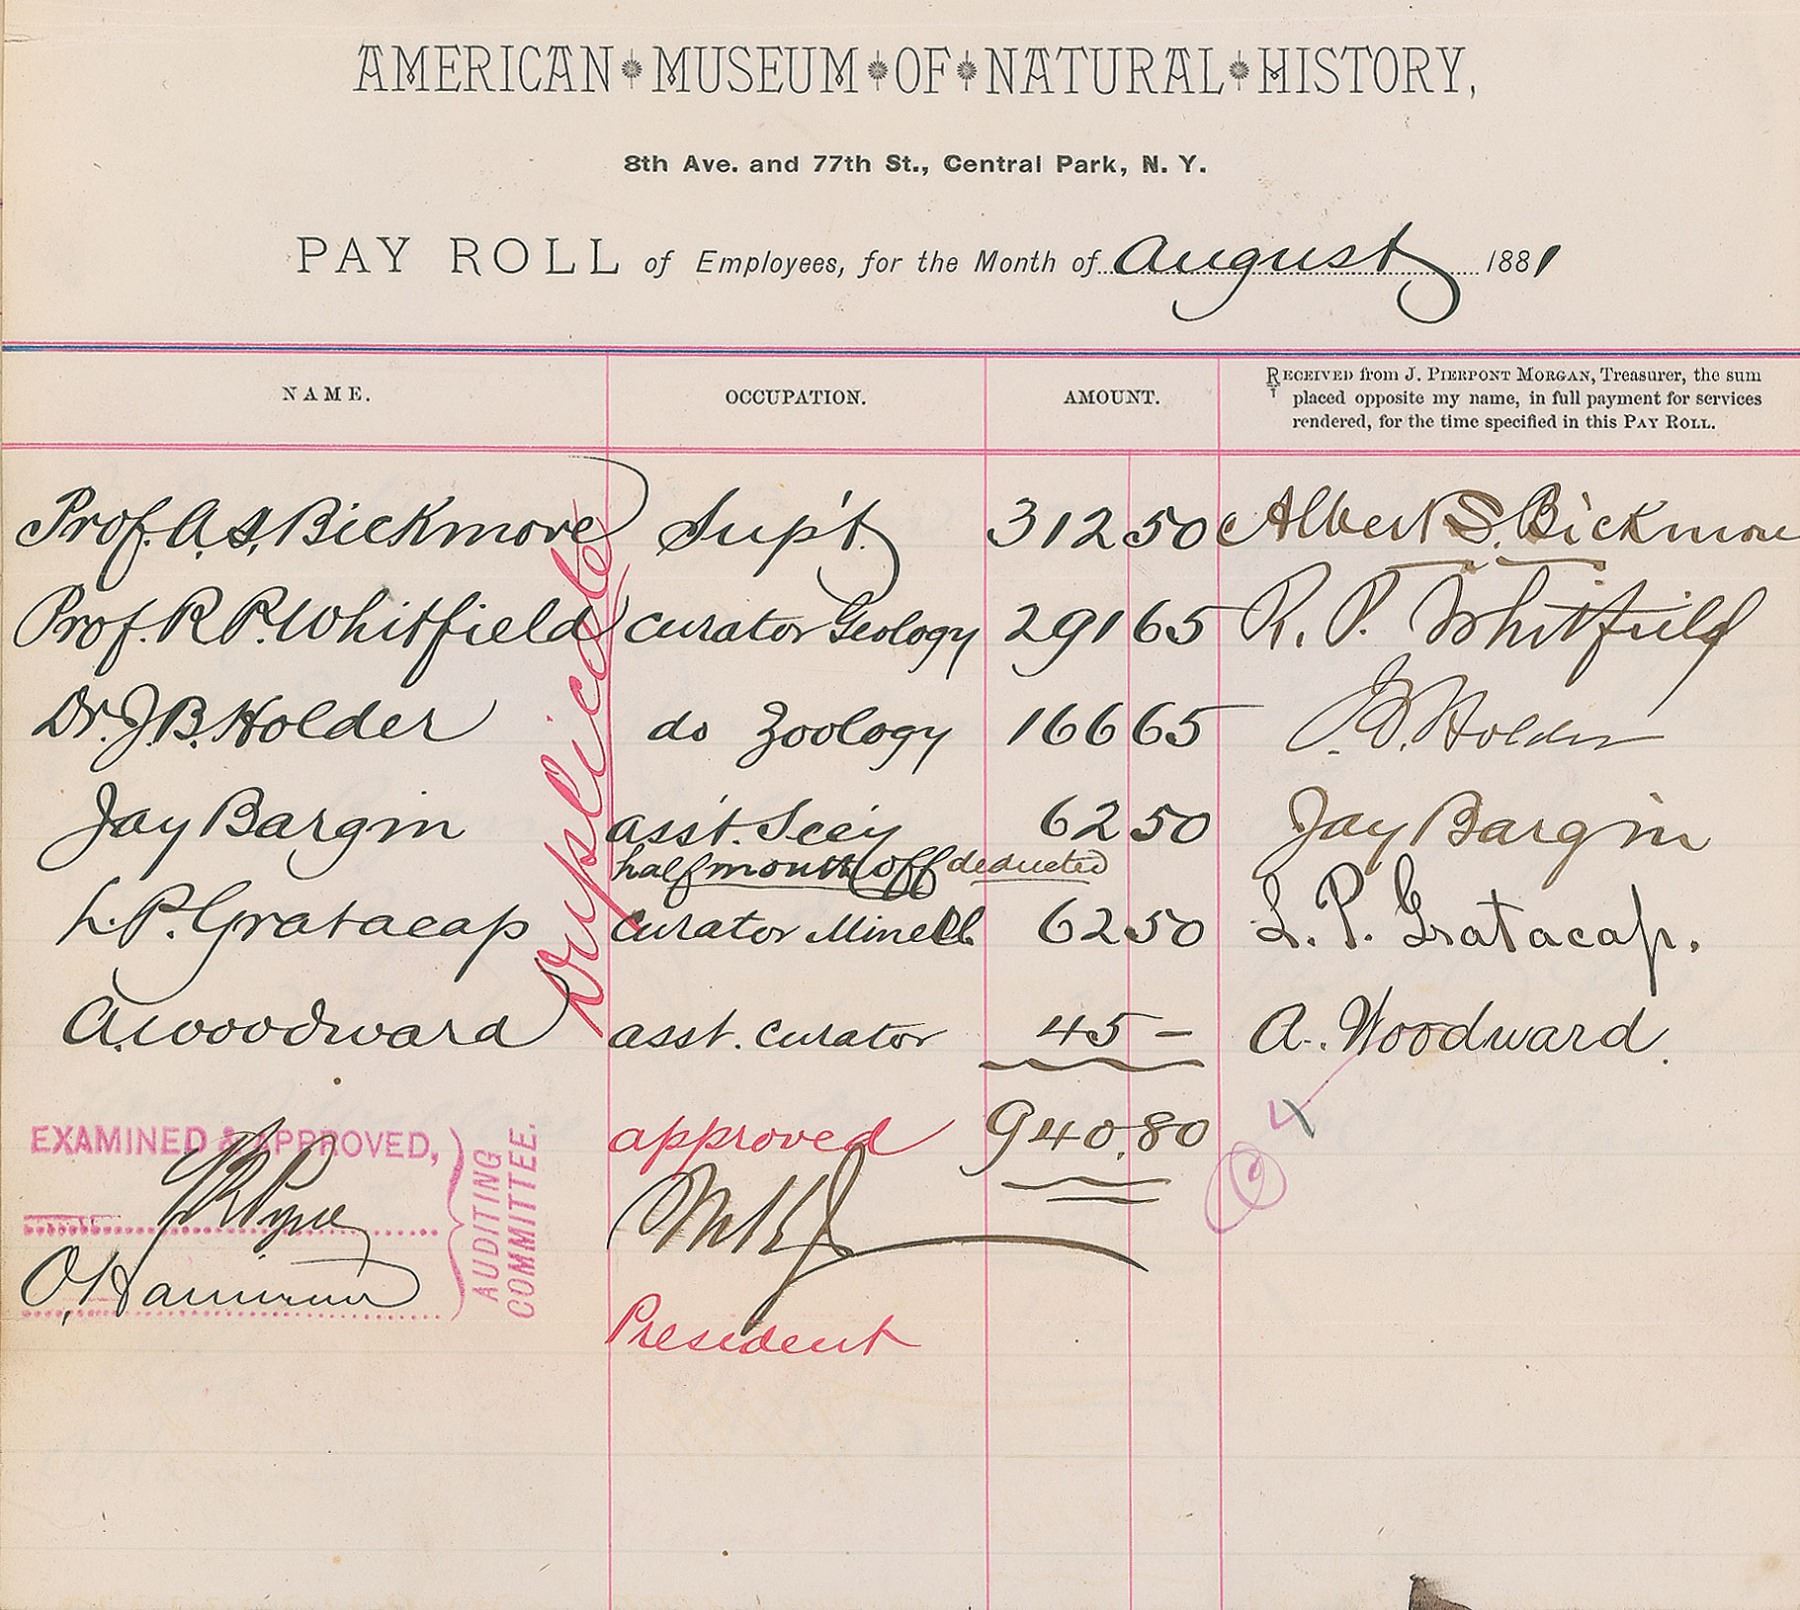 AMERICAN MUSEUM OF NATURAL HISTORY,
8th Ave. and 77th St., Central Park, N. Y.
PAY ROLL of Employees, for the Month of August 1881
NAME. OCCUPATION. AMOUNT. RECEIVED from J. PIERPONT MORGAN, Treasurer, the sum
placed opposite my name, in full payment for services
rendered, for the time specified in this PAY ROLL.
Prof. A. S. Bickmore Sup't. 312 50 Albert S. Bickmore
Prof. R. P. Whitfield Curator Geology 291 65 R. P. Whitfield
Dr. J. B. Holder do Zoology 166 65 J. B. Holder
Jay Bargin ass't. Secy 62 50 Jay Bargin
half month off deducted
L. P. Gratacap Curator Minell 62 50 L. P. Gratacap.
A. Woodward asst. Curator 45 – A. Woodward.
Duplicate
940.80
EXAMINED & APPROVED,
AUDITING
COMMITTEE.
approved
President